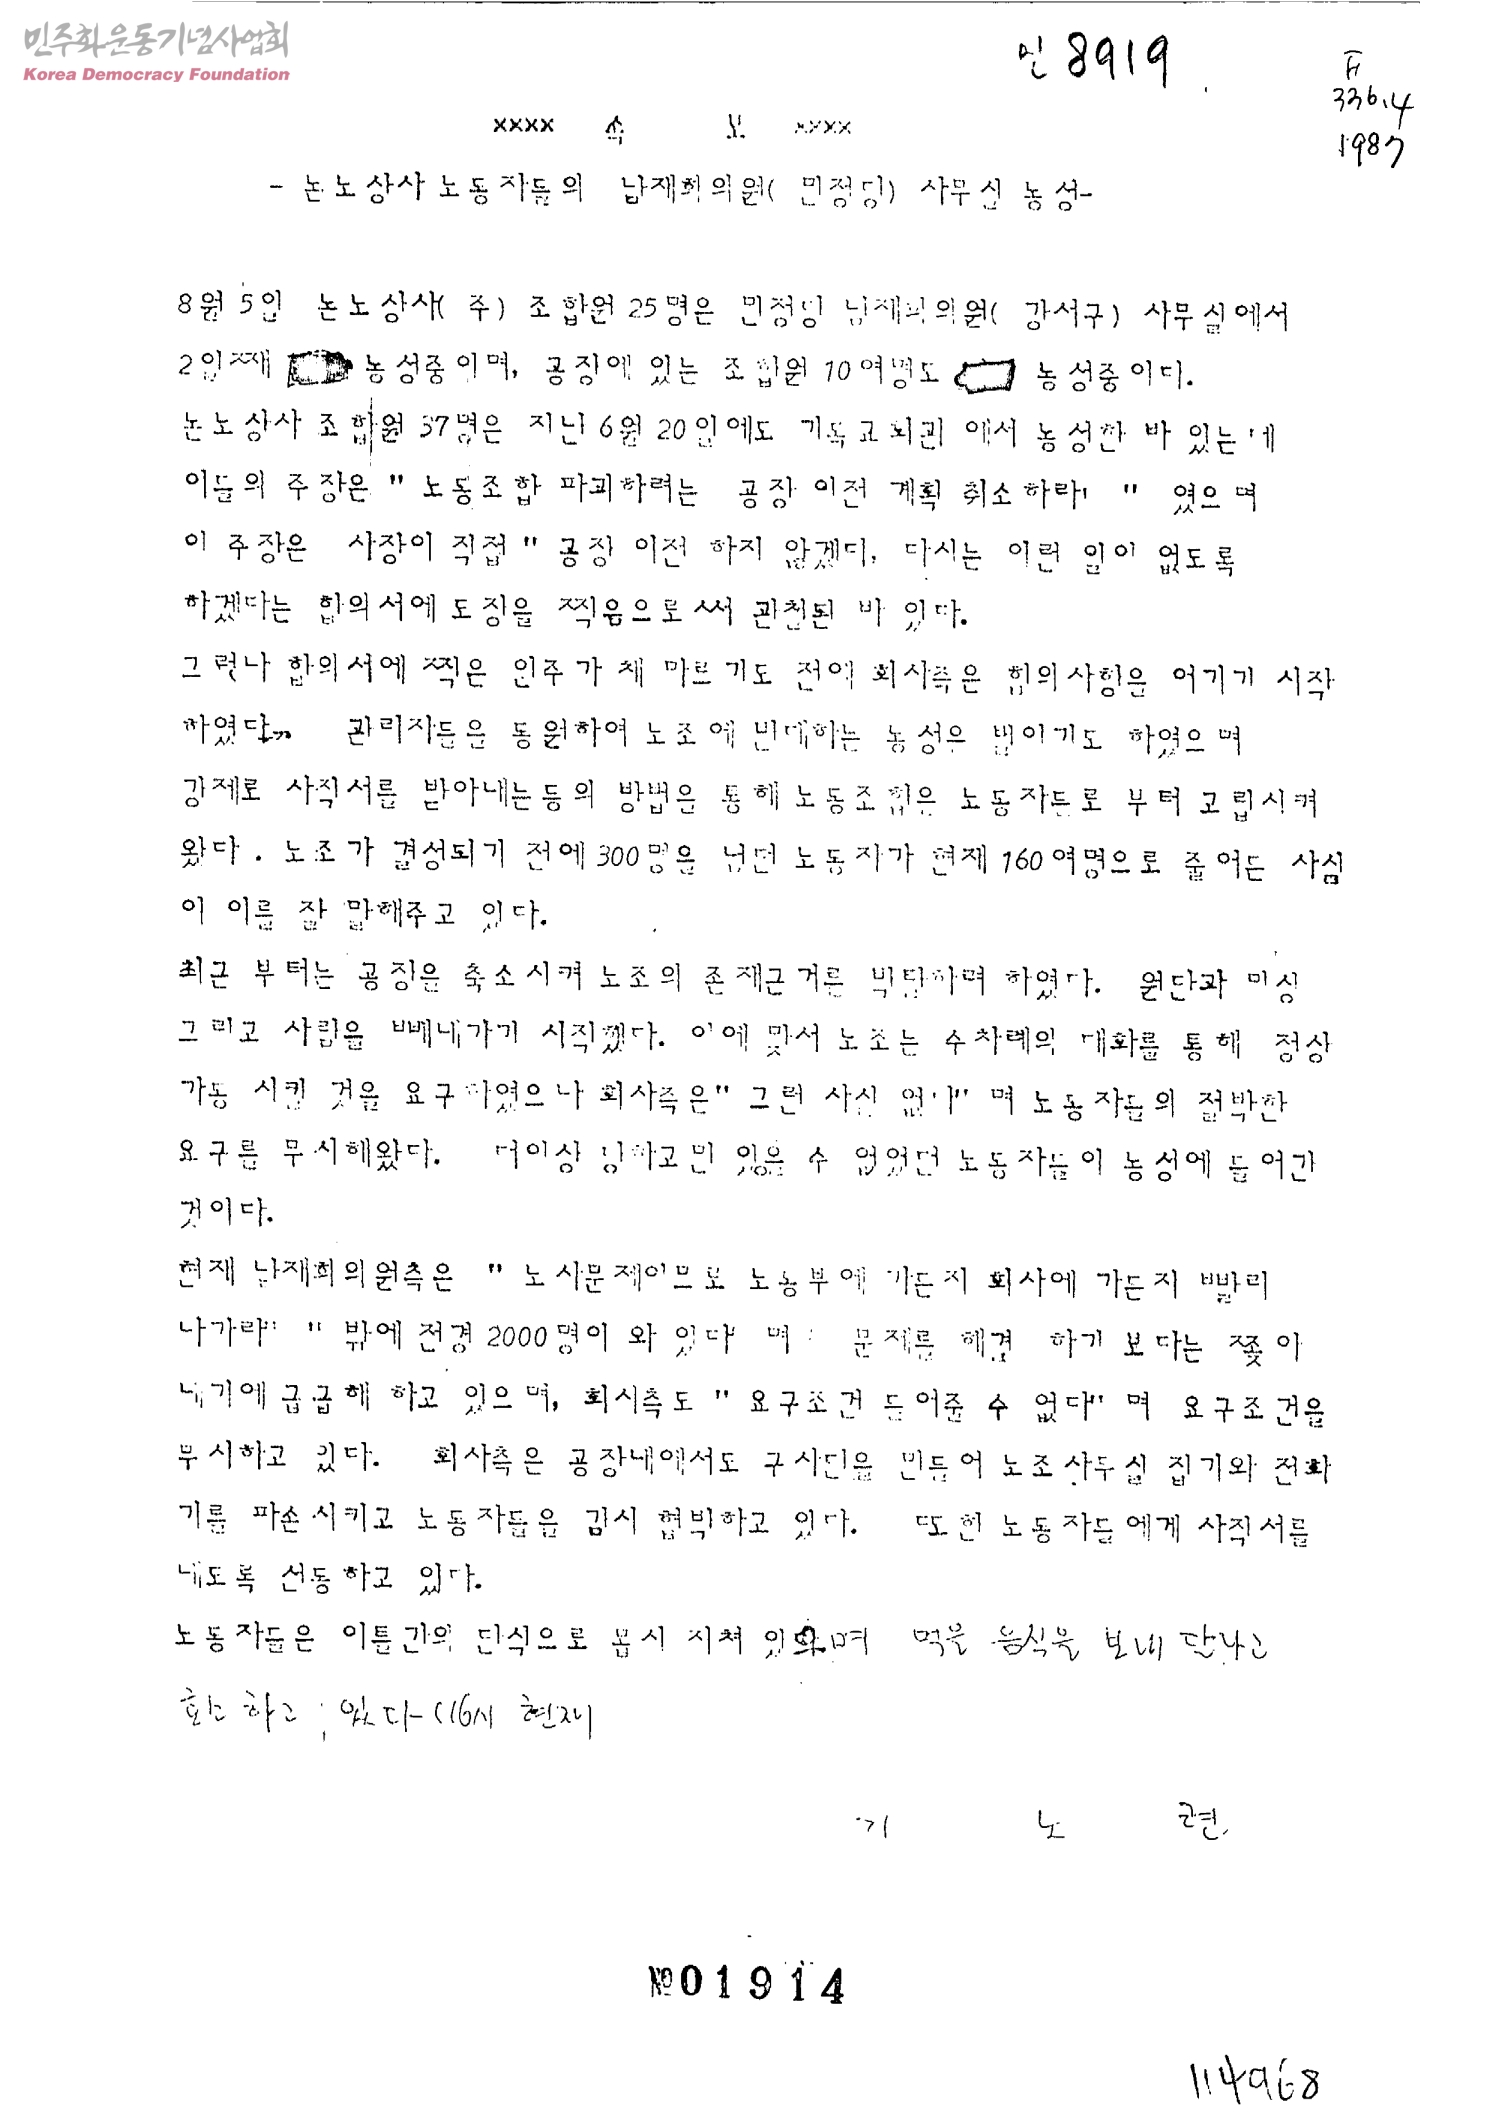 민주화운동기념사업회
Korea Democracy Foundation
민 8919
F
336.4
1987
xxxx 속 보 xxxx
- 논노상사노동자들의 남재희의원( 민정당) 사무실 농성-
8월 5일 논노상사( 주) 조합원 25명은 민정당 남재희의원( 강서구) 사무실에서
2일째 농성중이며, 공장에 있는 조합원 10여명도 농성중이다.
논노상사 조합원 37명은 지난 6월 20일에도 기독교회관 에서 농성한 바 있는데
이들의 주장은 " 노동조합 파괴하려는 공장 이전 계획 취소하라! " 였으며
이 주장은 사장이 직접 " 공장 이전 하지 않겠다, 다시는 이런 일이 없도록
하겠다는 합의서에 도장을 찍음으로써 관철된 바 있다.
그런나 합의서에 찍은 인주가 채 마르기도 전에 회사측은 합의사항을 어기기 시작
하였다. 관리자들을 동원하여 노조에 반대하는 농성을 벌이기도 하였으며
강제로 사직서를 받아내는등의 방법을 통해 노동조합을 노동자들로 부터 고립시켜
왔다. 노조가 결성되기 전에 300명을 넘던 노동자가 현재 160여명으로 줄어든 사실
이 이를 잘 말해주고 있다.
최근 부터는 공장을 축소시켜 노조의 존재근거를 박탈하려 하였다. 원단과 미싱
그리고 사람을 빼내가기 시작했다. 이에 맞서 노조는 수차례의 대화를 통해 정상
가동 시킬 것을 요구하였으나 회사측은" 그런 사실 없다" 며 노동자들의 절박한
요구를 무시해왔다. 더이상 당하고만 있을 수 없었던 노동자들이 농성에 들어간
것이다.
현재 남재희의원측은 " 노사문제이므로 노동부에 가든지 회사에 가든지 빨리
나가라" " 밖에 전경 2000명이 와 있다" 며 문제를 해결 하기 보다는 쫓아
내기에 급급해 하고 있으며, 회사측도 " 요구조건 들어줄 수 없다" 며 요구조건을
무시하고 있다. 회사측은 공장내에서도 구사단을 만들어 노조사무실 집기와 전화
기를 파손시키고 노동자들을 감시 협박하고 있다. 또한 노동자들에게 사직서를
내도록 선동하고 있다.
노동자들은 이틀간의 단식으로 몹시 지쳐 있으며 먹을 음식을 보내 달라고
호소하고 있다 (16시 현재
기 노 련
№01914
114968